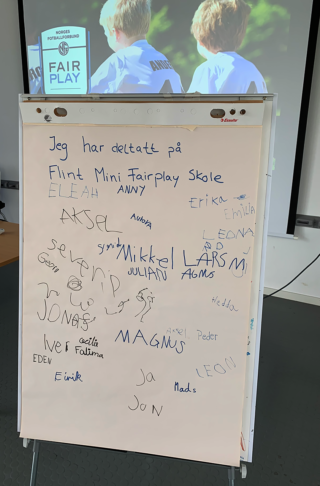 NORGES
FOTBALLFORBUND
FAIR
PLAY
Jeg har deltatt på
Flint Mini Fairplay Skole
ELEAH ANNY
Erika
Emilia
AKSEL Aurora
LEONA
Mikkel LARS M
Severin
JULIAN AgMUS
Georg
Hedda
JONAS
MAGNUS Peder
Iver Cecilie
Fatima
EDEN
LEON
Eirik Ja Mads
Jon